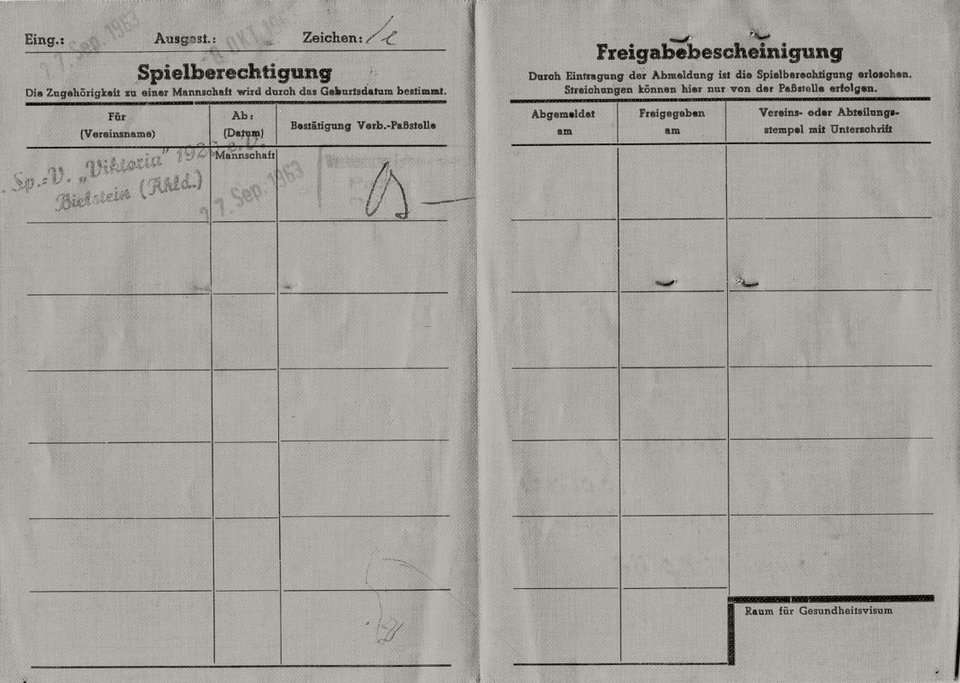 Eing.: 17. Sep. 1963 Ausgest.: 8. OKT. Zeichen:
Spielberechtigung
Die Zugehörigkeit zu einer Mannschaft wird durch das Geburtsdatum bestimmt.
Für
(Vereinsname)
Ab:
(Datum)
Bestätigung Verb.-Paßstelle
Mannschaft
Sp.-V. „Viktoria" e.V.
Bielstein (Rhld.)
17. Sep. 1963
Freigabebescheinigung
Durch Eintragung der Abmeldung ist die Spielberechtigung erloschen.
Streichungen können hier nur von der Paßstelle erfolgen.
Abgemeldet
am
Freigegeben
am
Vereins- oder Abteilungs-
stempel mit Unterschrift
Raum für Gesundheitsvisum